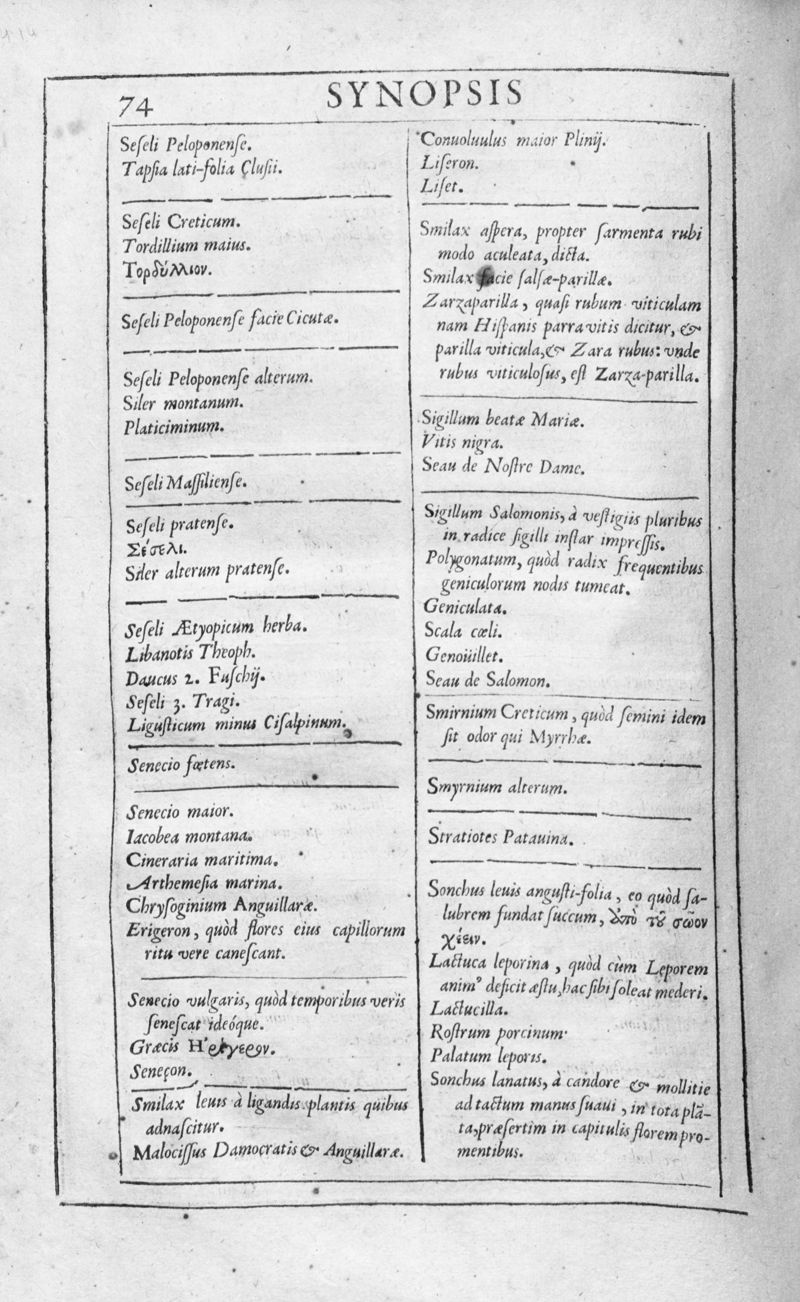 74
SYNOPSIS
Seſeli Peloponenſe.
Tapſia lati-folia Cluſii.
Seſeli Creticum.
Tordillium maius.
Τορδύλλιον.
Seſeli Peloponenſe facie Cicutæ.
Seſeli Peloponenſe alterum.
Siler montanum.
Platiciminum.
Seſeli Maſſilienſe.
Seſeli pratenſe.
Σέσελι.
Siler alterum pratenſe.
Seſeli Ætyopicum herba.
Libanotis Theoph.
Daucus 2. Fuſchij.
Seſeli 3. Tragi.
Liguſticum minus Ciſalpinum.
Senecio fœtens.
Senecio maior.
Iacobea montana.
Cineraria maritima.
Arthemeſia marina.
Chryſoginium Anguillaræ.
Erigeron, quòd flores eius capillorum
ritu vere caneſcant.
Senecio vulgaris, quòd temporibus veris
ſeneſcat ideóque.
Græcis Ἠριγερον.
Seneçon.
Smilax leuis à ligandis plantis quibus
adnaſcitur.
Malociſſus Damocratis & Anguillaræ.
Conuoluulus maior Plinij.
Liſeron.
Liſet.
Smilax aſpera, propter ſarmenta rubi
modo aculeata, dicta.
Smilax facie ſalſæ-parillæ.
Zarzaparilla, quaſi rubum viticulam
nam Hiſpanis parra vitis dicitur, &
parilla viticula, & Zara rubus: vnde
rubus viticuloſus, eſt Zarza-parilla.
Sigillum beatæ Mariæ.
Vitis nigra.
Seau de Noſtre Dame.
Sigillum Salomonis, à veſtigiis pluribus
in radice ſigilli inſtar impreſſis.
Polygonatum, quòd radix frequentibus
geniculorum nodis tumeat.
Geniculata.
Scala cœli.
Genoüillet.
Seau de Salomon.
Smirnium Creticum, quòd ſemini idem
ſit odor qui Myrrhæ.
Smyrnium alterum.
Stratiotes Patauina.
Sonchus leuis anguſti-folia, eo quòd ſa-
lubrem fundat ſuccum, ἀπὸ τοῦ σῶον
χέειν.
Lactuca leporina, quòd cùm Leporem
animꝰ deficit æſtu, hac ſibi ſoleat mederi.
Lactucilla.
Roſtrum porcinum.
Palatum leporis.
Sonchus lanatus, à candore & mollitie
ad tactum manus ſuaui, in tota plã-
ta, præſertim in capitulis florem pro-
mentibus.